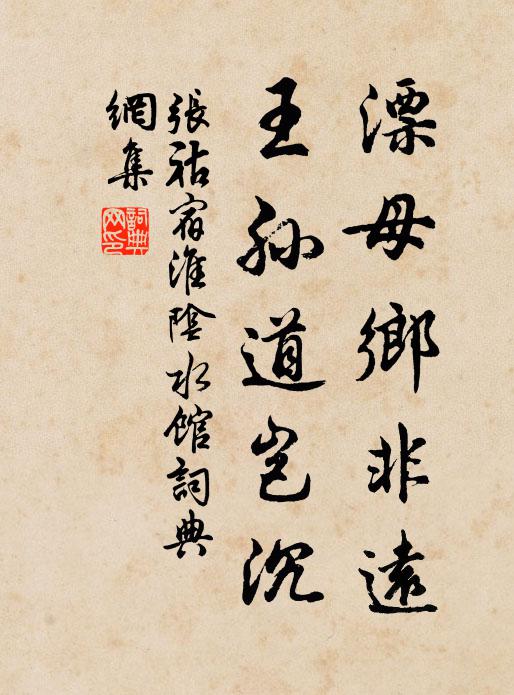 漂母鄉非遠
王孫道豈沉
張祜宿淮陰水館詞典
網集
詞典
网印